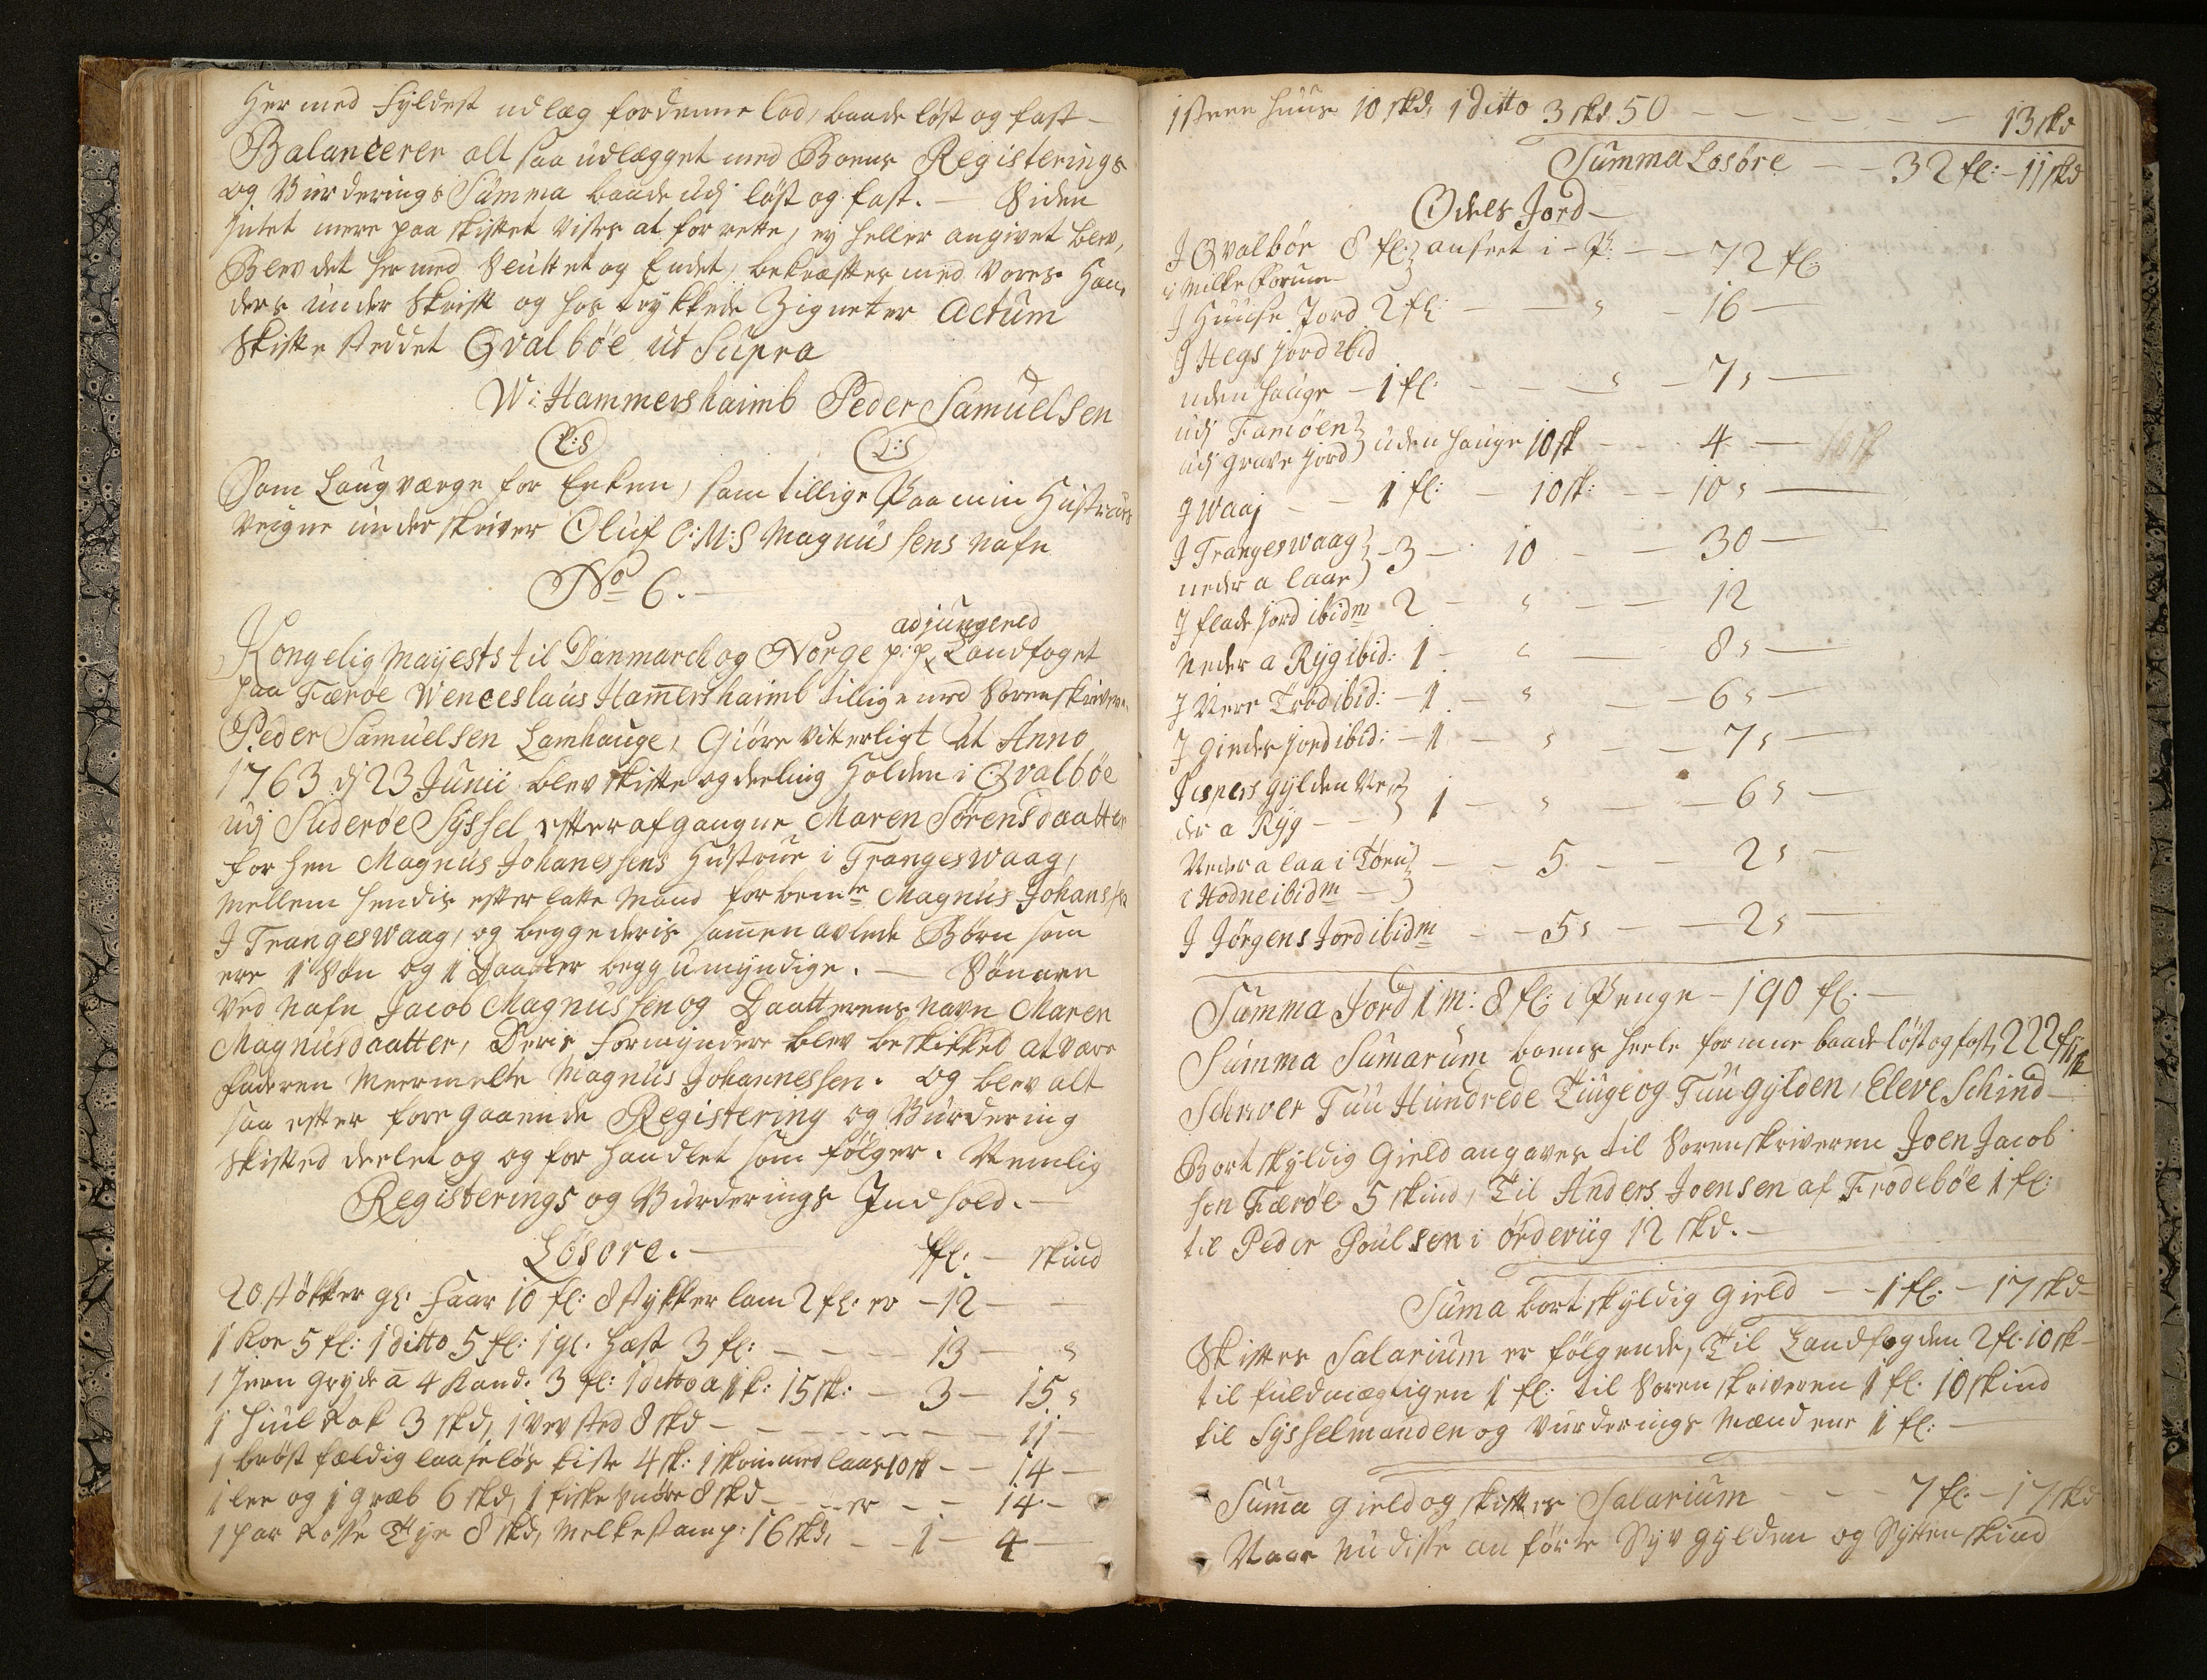 Her med fyldest udlæg for denne lod, baade løst og fast -
Balancerer alt saa udlægget med Boens Registerings
og Vurderings Summa baade udj løst og fast. - Siden
Intet mere paa skiftet vistes at forrette, ey heller angivet blev,
Blev det her med Sluttet og Endet, bekræfter med vores Hæn
ders under Skrift og hos trykkede Zigneter Actum
Skifte Steddet Qvalbøe ut Supra
W: Hammershaimb Peder Samuelsen
L:S L:S
Som Laugværge for Enken, som tillige Paa min Hustrues
Veigne under skriver Oluf O:M:S Magnussens nafn
No 6.-
adjungered
Kongelig Mayests til Danmarch og Norge p:p: Landfoget
paa Færøe Wenceslaus Hamershaimb tillige med Sorenskriver
Peder Samuelsen Lamhauge, Giøre vitterligt At Anno
1763 dj 23 Junii blev skifte og deeling Holden i Qvalbøe
udj Suderøe Syssel efter afgangne Maren Sørensdaatter
forhen Magnus Johanessens Hustrue i Trangeswaag,
mellem hendis efterlatte Mand forbemte Magnus Johanssen
I Trangeswaag, og begge deris samen avlede Børn som
ere 1 Søn og 1 Daatter begge umyndige. - Sønnen
Ved Nafn Jacob Magnussen og Daatterens navn Maren
Magnusdaatter, Deris Formyndere blev beskikked at være
Faderen Meermelte Magnus Johannessen. og blev alt
saa efter foregaaende Registering og Vurdering
Skifted deelet og og forhandlet som følger. Nemlig
Registerings og Vurderings Indhold.-
Løsøre.- fl: - skind
20 støkker gl: Faar 10 fl: 8 stykker lam 2 fl: er - 12 -
1 Koe 5 fl: 1 ditto 5 fl: 1 gl: Hæst 3 fl: - - - 13 - "
1 Jern gryde a 4 Kand: 3 fl: 1 ditto a 1 k: 15 sk: - 3 - 15 "
1 Hiul Rok 3 skd, 1 Vevsted 8 skd - - - - - 11 -
1 brøstfældig laaseløs kiste 4 sk: 1 skrin med laas 10 sk - - 14 -
1 lee og 1 græb 6 skd, 1 fiske Snøre 8 skd - - er - - 14 -
1 par Tye 8 skd, Melkestamp: 16 skd, - - 1 - 4 -
1 Steen Huus 10 skd, 1 ditto 3 skd 50 - - - - - - 13 skd
Summa Løsøre - - 32 fl: - 11 skd
Odels Jord -
I Qvalbøe 8 fl: ansеet i - P: - - 72 fl:
i
I Huuse Jord 2 fl: - - " - 16 -
I Hegs jord ibid
uden hauge - 1 fl: - - - " - 7 " -
udj Famöen
udj Grave jord uden hauge 10 sk - - - 4 -
I Waaj - - 1 fl: - 10 sk: - - 10 " -
I Trangeswaag - 3 - 10 - - 30 -
neder a laae
I flade jord ibidm 2 - " - - 12
Neder a Ryg ibid: 1 - " - 8 " -
I Nere Trød ibid: - 1 - " - - 6 " -
I Giedes jord ibid: - 1 - " - - 7 " -
Jespers gylden Ne
der a Ryg - - 1 - " - - 6 " -
Neder a laa i - - 5 - - 2 " -
i Hodne ibidm -
I Jørgens Jord ibidm - - 5 " - - 2 " -
Summa Jord 1 m: 8 fl: i Penge - 190 fl: -
Summa Sumarum boens heele formue baade løst og fast, 222 fl 11 sk
Schriver Tuu Hundrede Tiuge og Tuu Gylden, Eleve Schind -
Bortskyldig Gield angaves til Sorenskriveren Joen Jacob
sen Færøe 5 skind, Til Anders Joensen af Frodebøe 1 fl:
til Peder Poulsen i Ørdeviig 12 skd. -
Suma bortskyldig gield - - 1 fl: - 17 skd -
Skiftes Salarium er følgende, Til Landfogden 2 fl: 10 sk -
til fuldmægtigen 1 fl: til Sorenskriveren 1 fl: 10 skind
til Sysselmanden og Vurderings Mændene 1 fl: -
Suma gield og skiftes Salarium - - - 7 fl: - 17 skd
Naar nu disse anførte Syv gylden og Sytten skind